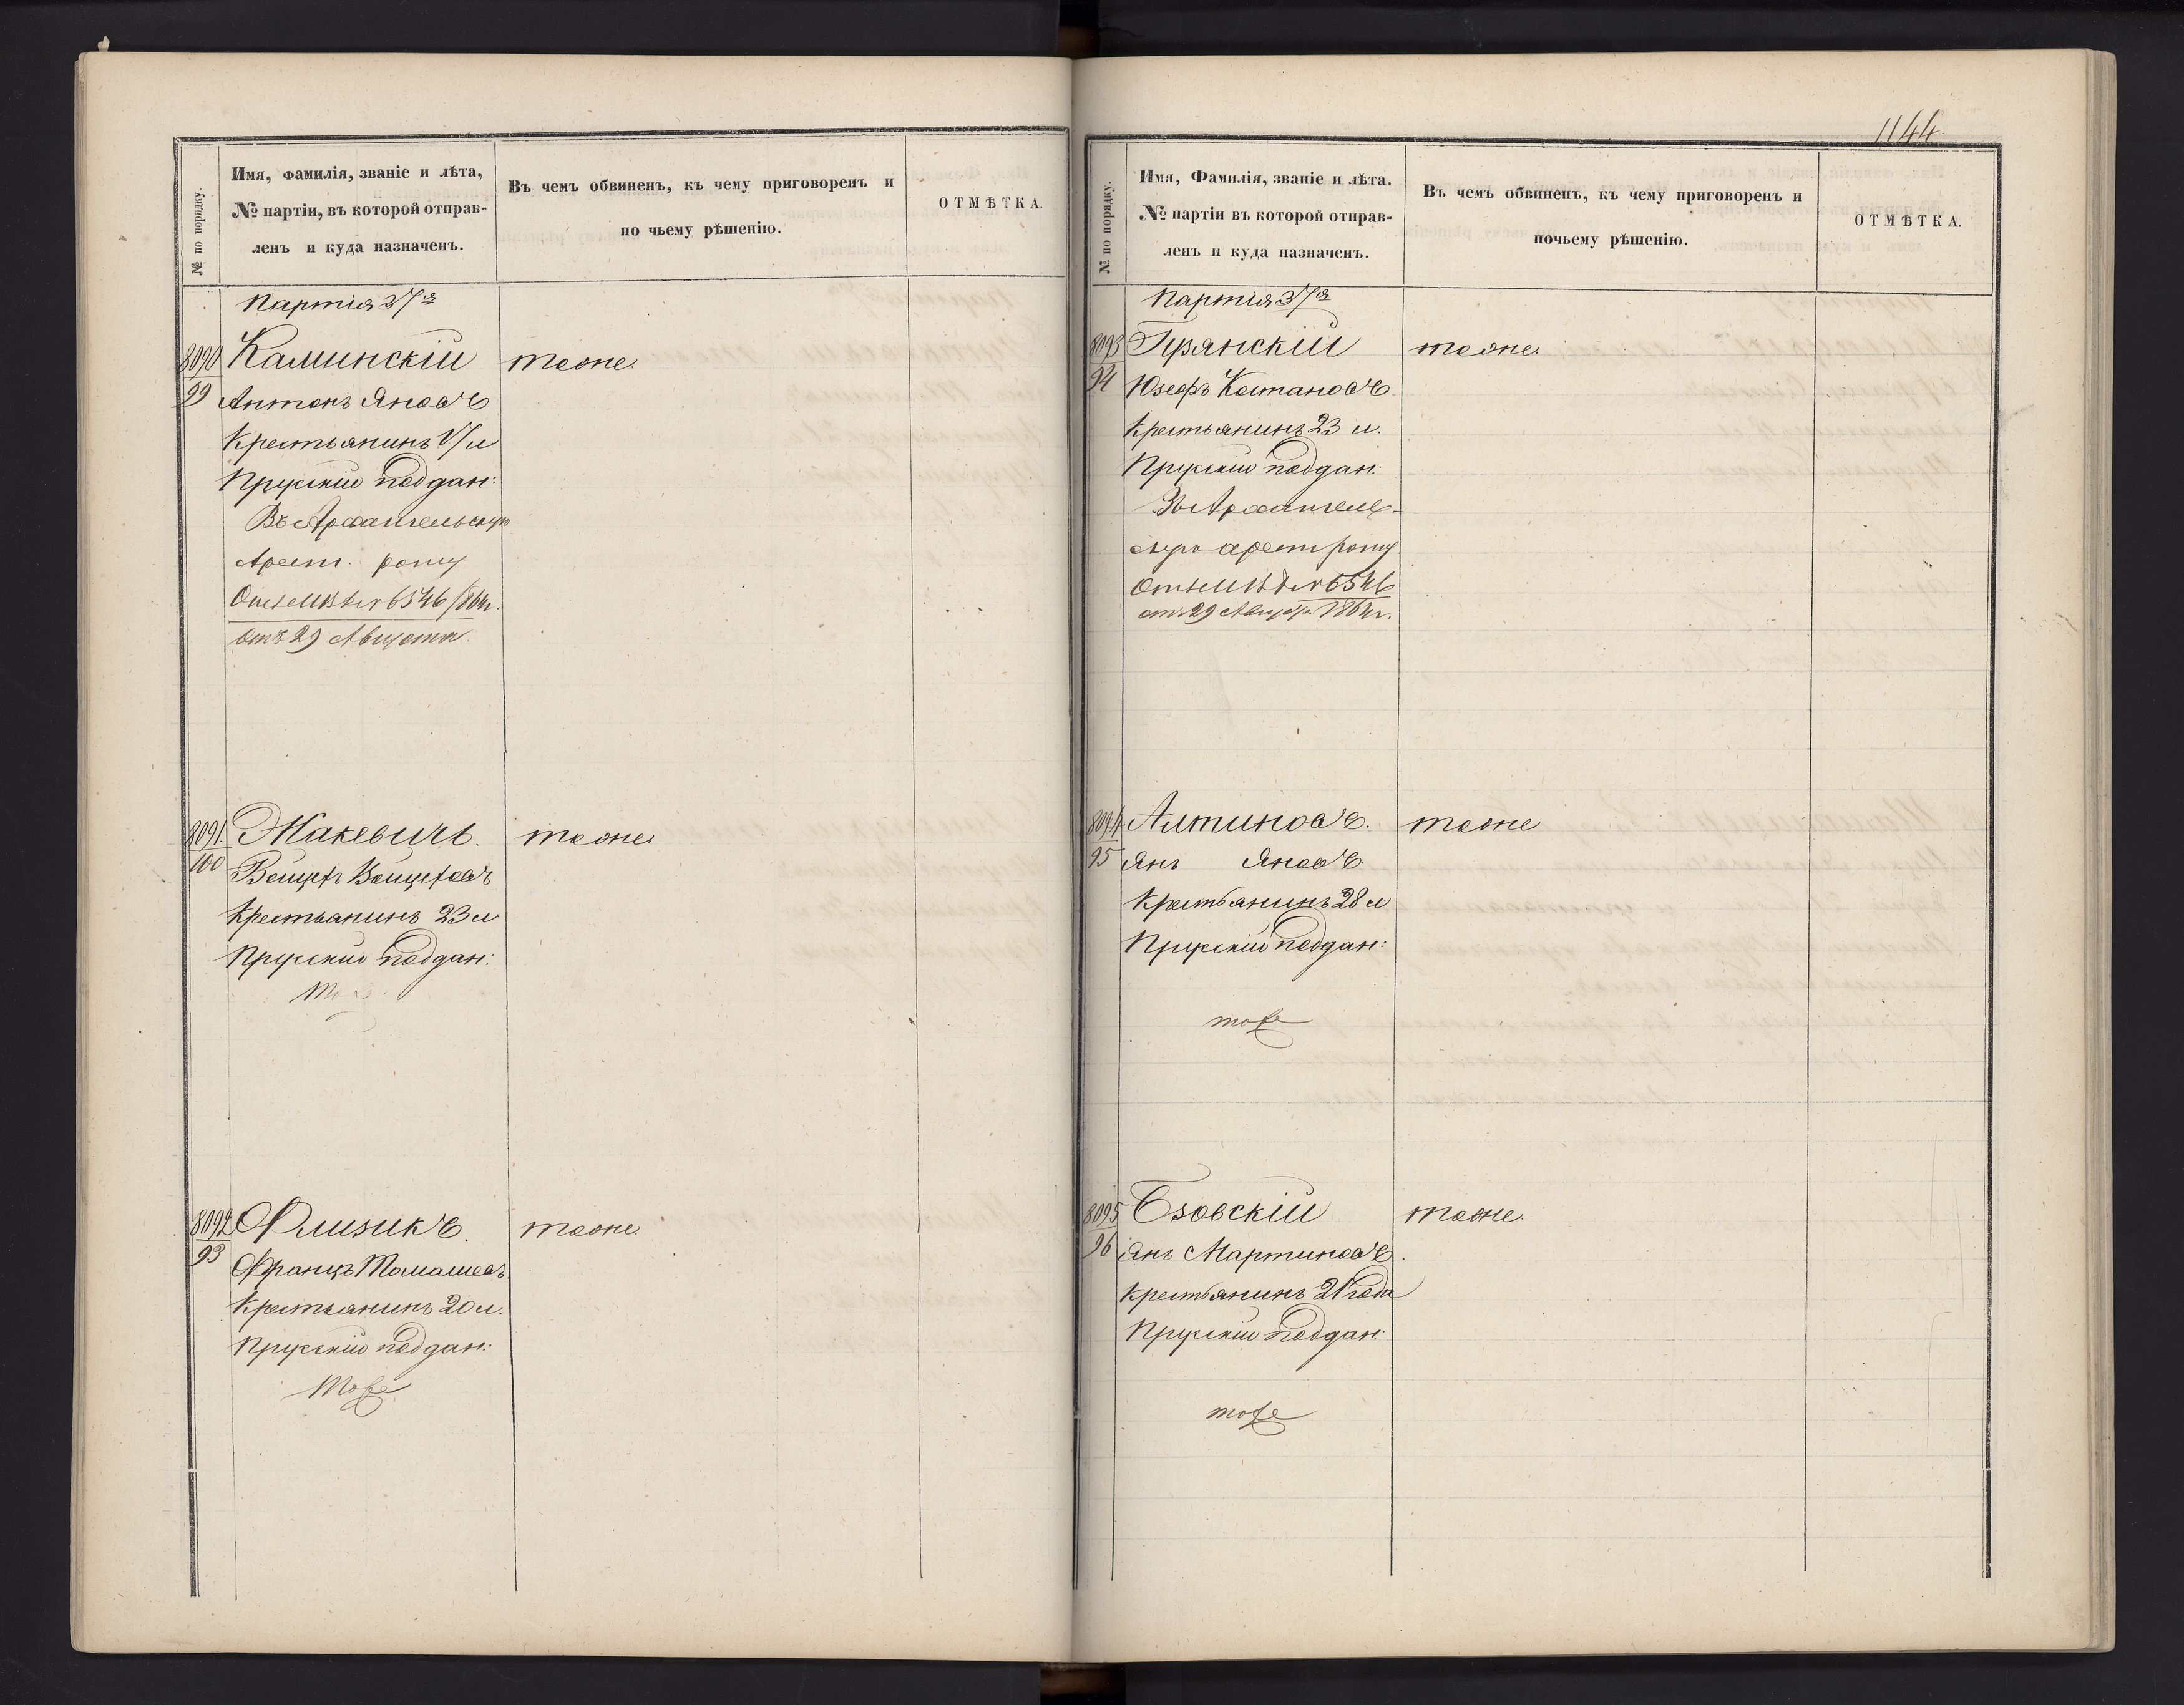 № по порядку.
Имя, фамилія, званіе и лѣта,
№ партіи, въ которой отправ-
ленъ и куда назначенъ.
Въ чемъ обвиненъ, къ чему приговоренъ и
по чьему рѣшенію.
ОТМѢТКА.
Партія 37я
8090
99
Каминскій
тоже.
Антонъ Яновъ
Крестьянинъ
Прускій поддан:
Въ Архангельскую
Арест. роту
№ 6546/864г.
отъ 29 Августа
8091.
100
Жакевичъ.
тоже
Войцехъ Войцеховъ
Крестьянинъ 23 л
Прускій поддан:
8092
93
Флизикъ.
тоже
Францъ Томашевъ.
Крестьянинъ 20 л.
Прускій поддан:
Тоже
1144.
№ по порядку.
Имя, Фамилія, званіе и лѣта.
№ партіи въ которой отправ-
ленъ и куда назначенъ.
Въ чемъ обвиненъ, къ чему приговоренъ и
почьему рѣшенію.
ОТМѢТКА.
Партія 37я
8093
94
тоже.
Юзефъ
Крестьянинъ 23 л.
Прускій поддан:
Въ Архангель-
скую арест роту
№ 6546
отъ 29 Августа 1864г.
8094
95
Алтиновъ.
тоже
Янъ Яновъ
Крестьянинъ 28 л
Прускій поддан:
тоже
8095
96
Бзовскій
тоже.
Янъ Мартиновъ.
Крестьянинъ 21 года
Прускій поддан:
тоже